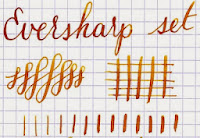 Eversharp set